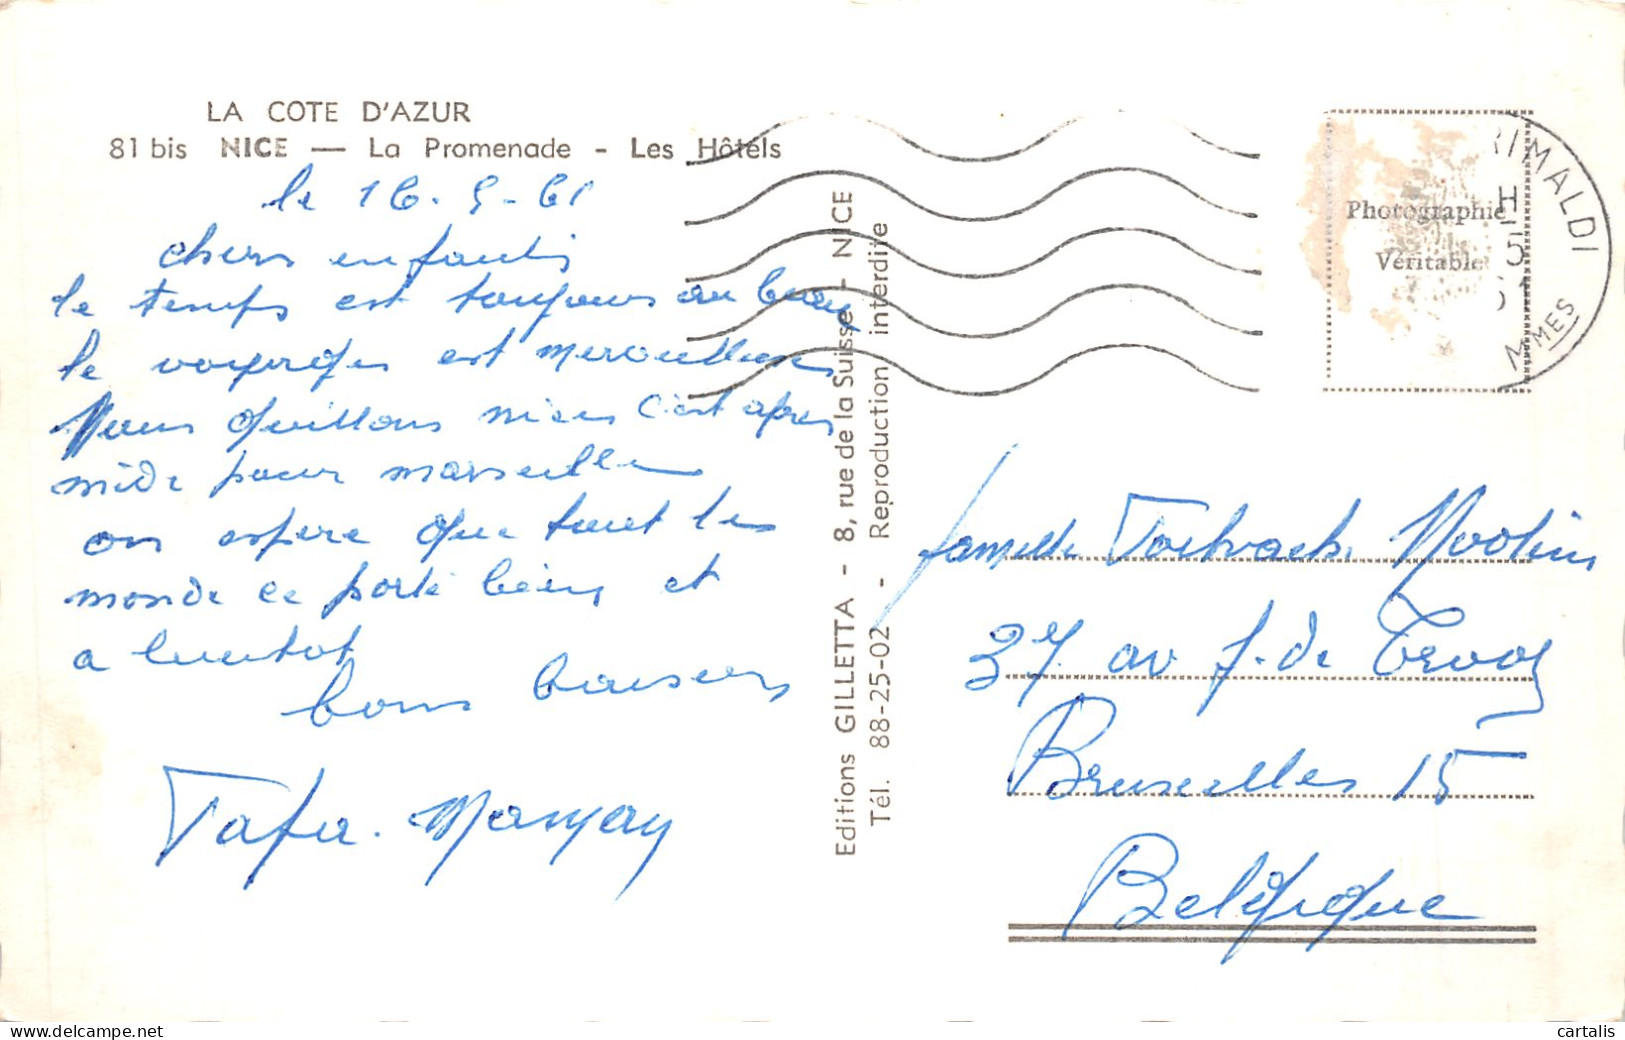 LA COTE D'AZUR
81 bis NICE — La Promenade - Les Hôtels
le 16-5-61
chers enfants
le temps est toujours au beau
le voyages est merveilleux
Nous quittons nice c'est apres
midi pour marseille
on espere que tout les
monde ce porte bien et
a bientot
bons baisers
Editions GILLETTA - 8, rue de la Suisse - NICE
Tél. 88-25-02 - Reproduction interdite
Photographie
Véritable
RIMALDI
H
5
61
MMES
famille
37 av f. de
Bruxelles 15
Belgique
www.delcampe.net
cartalis